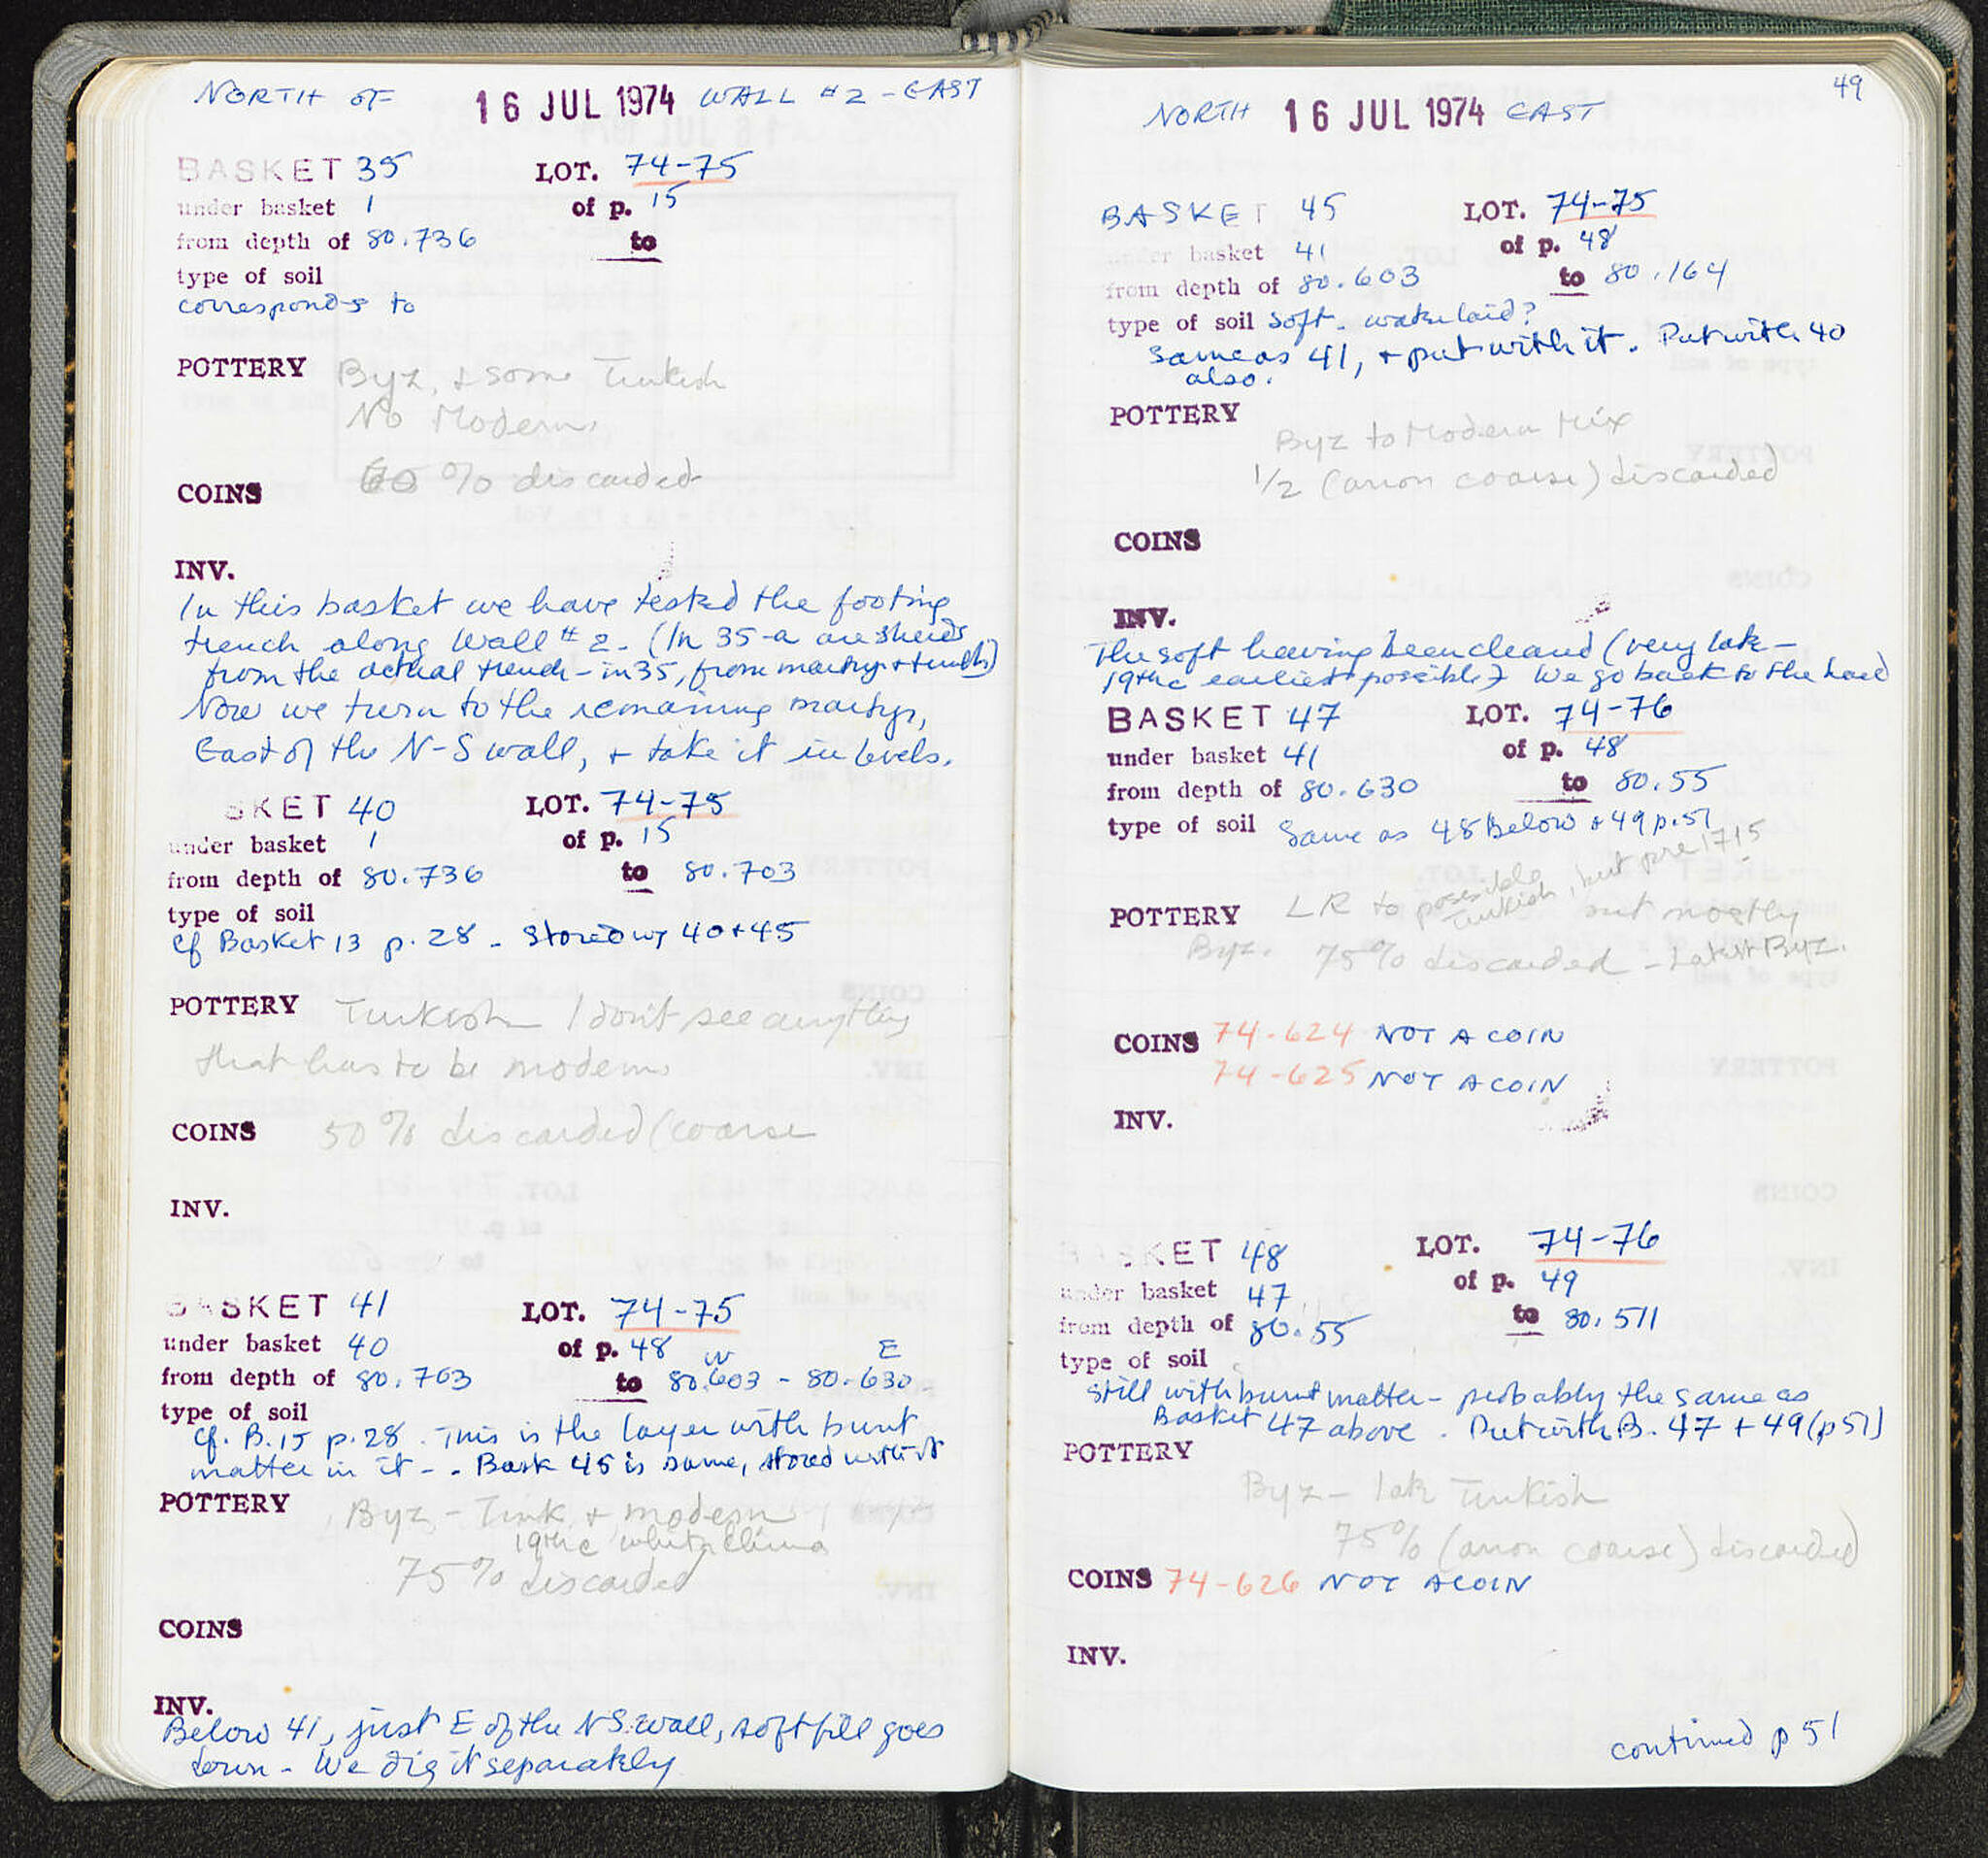 NORTH OF 16 JUL 1974 WALL #2 - EAST
BASKET 35 LOT. 74-75
under basket 1 of p. 15
from depth of 80.736 to
type of soil
corresponds to
POTTERY Byz, & some Turkish
No Modern.
60 % discarded
COINS
INV.
In this basket we have tested the footing
trench along Wall #2. (In 35-a are sherds
from the actual trench - in 35, from martyr + trench)
Now we turn to the remaining martyr,
East of the N-S wall, + take it in levels.
SKET 40 LOT. 74-75
under basket 1 of p. 15
from depth of 80.736 to 80.703
type of soil
cf Basket 13 p. 28 - Stored w/ 40+45
POTTERY Turkish I don't see anything
that has to be modern
COINS 50% discarded (coarse
INV.
BASKET 41 LOT. 74-75
under basket 40 of p. 48 W E
from depth of 80.703 to 80.603 - 80.630
type of soil
cf. B.15 p.28. This is the layer with burnt
matter in it -. Bask 45 is same, stored with it
POTTERY Byz - Turk + modern
19th c white china
75% discarded
COINS
INV.
Below 41, just E of the NS wall, soft fill goes
down - We dig it separately
49
NORTH 16 JUL 1974 EAST
BASKET 45 LOT. 74-75
under basket 41 of p. 48
from depth of 80.603 to 80.164
type of soil soft - water laid?
Same as 41, + put with it. Put with 40
also.
POTTERY
Byz to Modern Mix
1/2 (anon coarse) discarded
COINS
INV.
The soft having been cleaned (very late -
19th c earliest possible) We go back to the hard
BASKET 47 LOT. 74-76
under basket 41 of p. 48
from depth of 80.630 to 80.55
type of soil Same as 48 Below & 49 p.51
POTTERY LR to possible Turkish, but pre 1715 but mostly
Byz. 75% discarded - Latest Byz.
COINS 74-624 NOT A COIN
74-625 NOT A COIN
INV.
BASKET 48 LOT. 74-76
under basket 47 of p. 49
from depth of 80.55 to 80.511
type of soil
still with burnt matter - probably the same as
Basket 47 above. Put with B. 47 + 49 (p 51)
POTTERY
Byz - late Turkish
75% (anon coarse) discarded
COINS 74-626 NOT A COIN
INV.
continued p 51